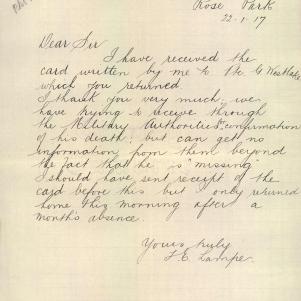 Rose Park
22-1-17
Dear Sir
I have received the
card written by me to Pte G Westlake
which you returned
I thank you very much, we
have trying to receive through
the Military Authorities confirmation
of his death; but can get no
information from them beyond
the fact that he is "missing"
I should have sent receipt of the
card before this but only returned
home this morning after a
month's absence.
Yours truly